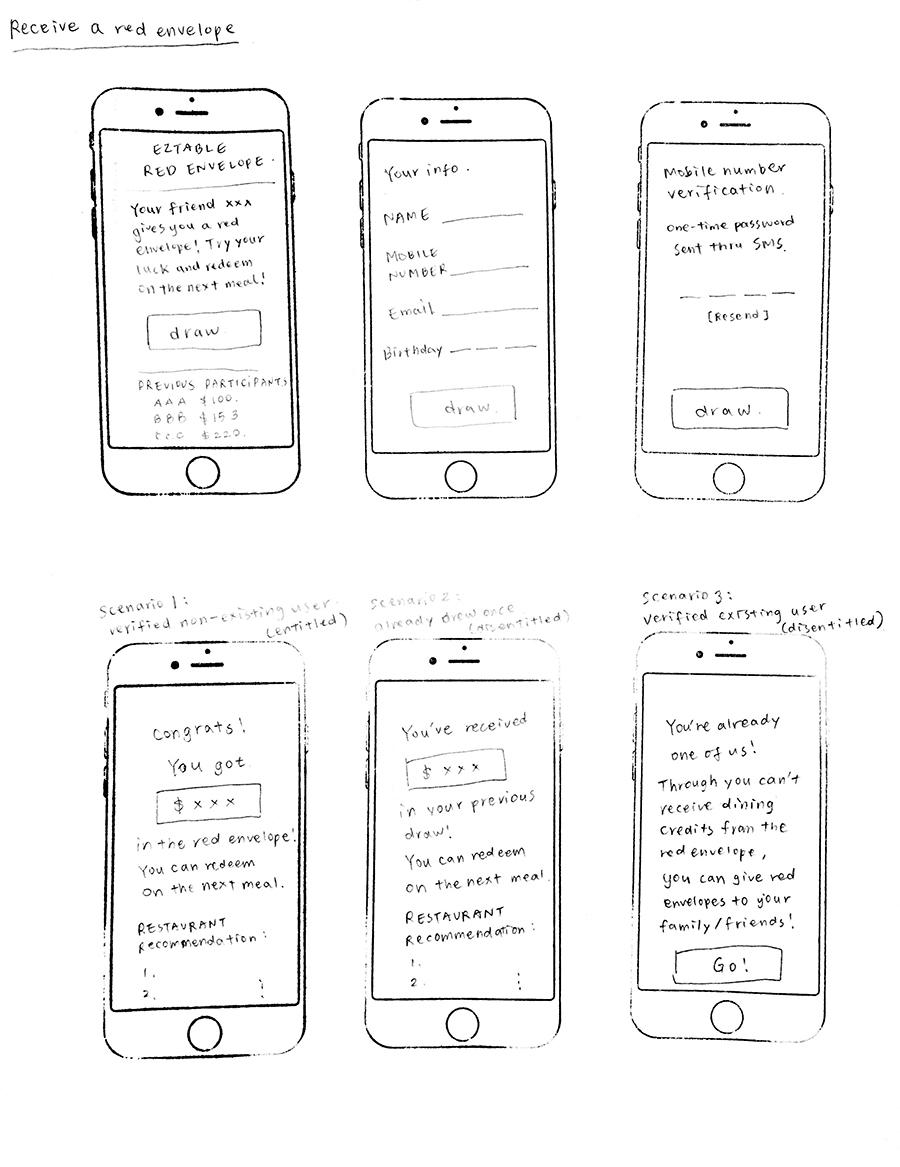 Receive a red envelope
EZTABLE
RED ENVELOPE.
Your friend xxx
gives you a red
envelope! Try your
luck and redeem
on the next meal!
draw.
PREVIOUS PARTICIPANTS
AAA $100.
BBB $153
CCC $220.
Your info.
NAME
MOBILE
NUMBER
Email
Birthday
draw.
Mobile number
verification.
one-time password
sent thru SMS.
[Resend]
draw.
Scenario 1:
verified non-existing user.
(entitled)
Congrats!
You got
$ x x x
in the red envelope!
You can redeem
on the next meal.
RESTAURANT
Recommendation:
1.
2.
Scenario 2:
already drew once
(disentitled)
You've received
$ x x x
in your previous
draw!
You can redeem
on the next meal.
RESTAURANT
Recommendation:
1.
2.
Scenario 3:
verified existing user
(disentitled)
You're already
one of us!
Through you can't
receive dining
credits from the
red envelope,
you can give red
envelopes to your
family/friends!
Go!